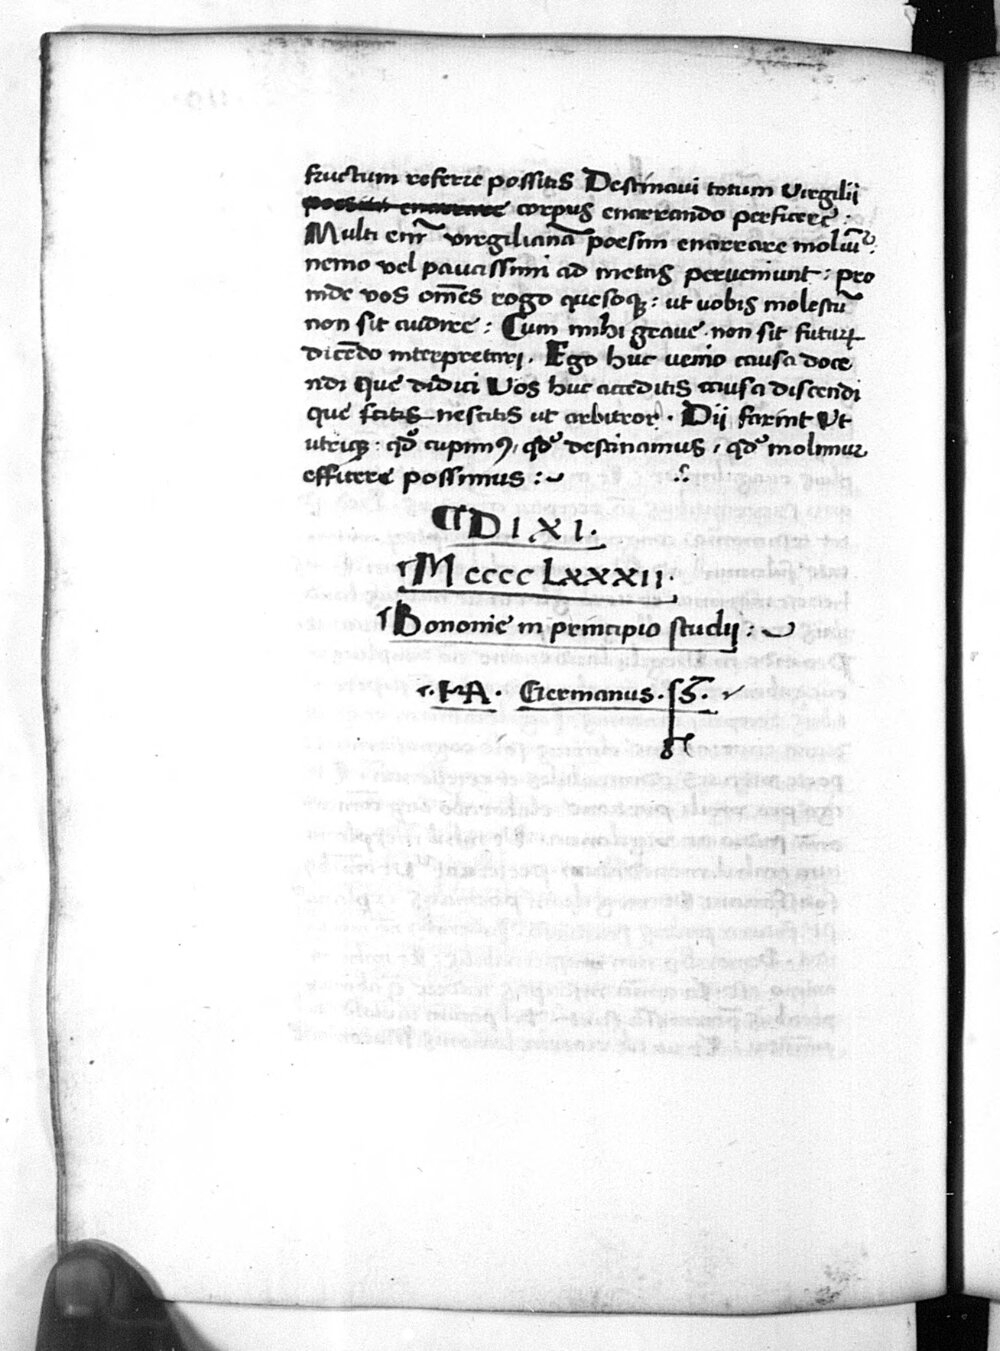 fructum referre possitis Destinaui totum Virgilii
corpus enarrando perficere :
Multi em̄ virgilianā poesim enarrare moliūt᷑
nemo vel pauassimi ad metas peruemiunt : pro
inde vos om̄es rogo quesoqꝫ : ut uobis molestū
non sit audire : Cum mihi graue non sit futurū
dicēdo interpretari . Ego huc uenio causa doce
ndi Que didici Vos huc acceditis causa discendi
que scitis nescitis ut arbitror . Dij faxint Ut
utriqꝫ qd̛ cupimꝰ , qd̛ destinamus , qd̛ molimur
efficere possimus :
¶ DIXI .
Mcccc Lxxxii .
Bononie in principio studij :
. HA . Germanus . ſſ .